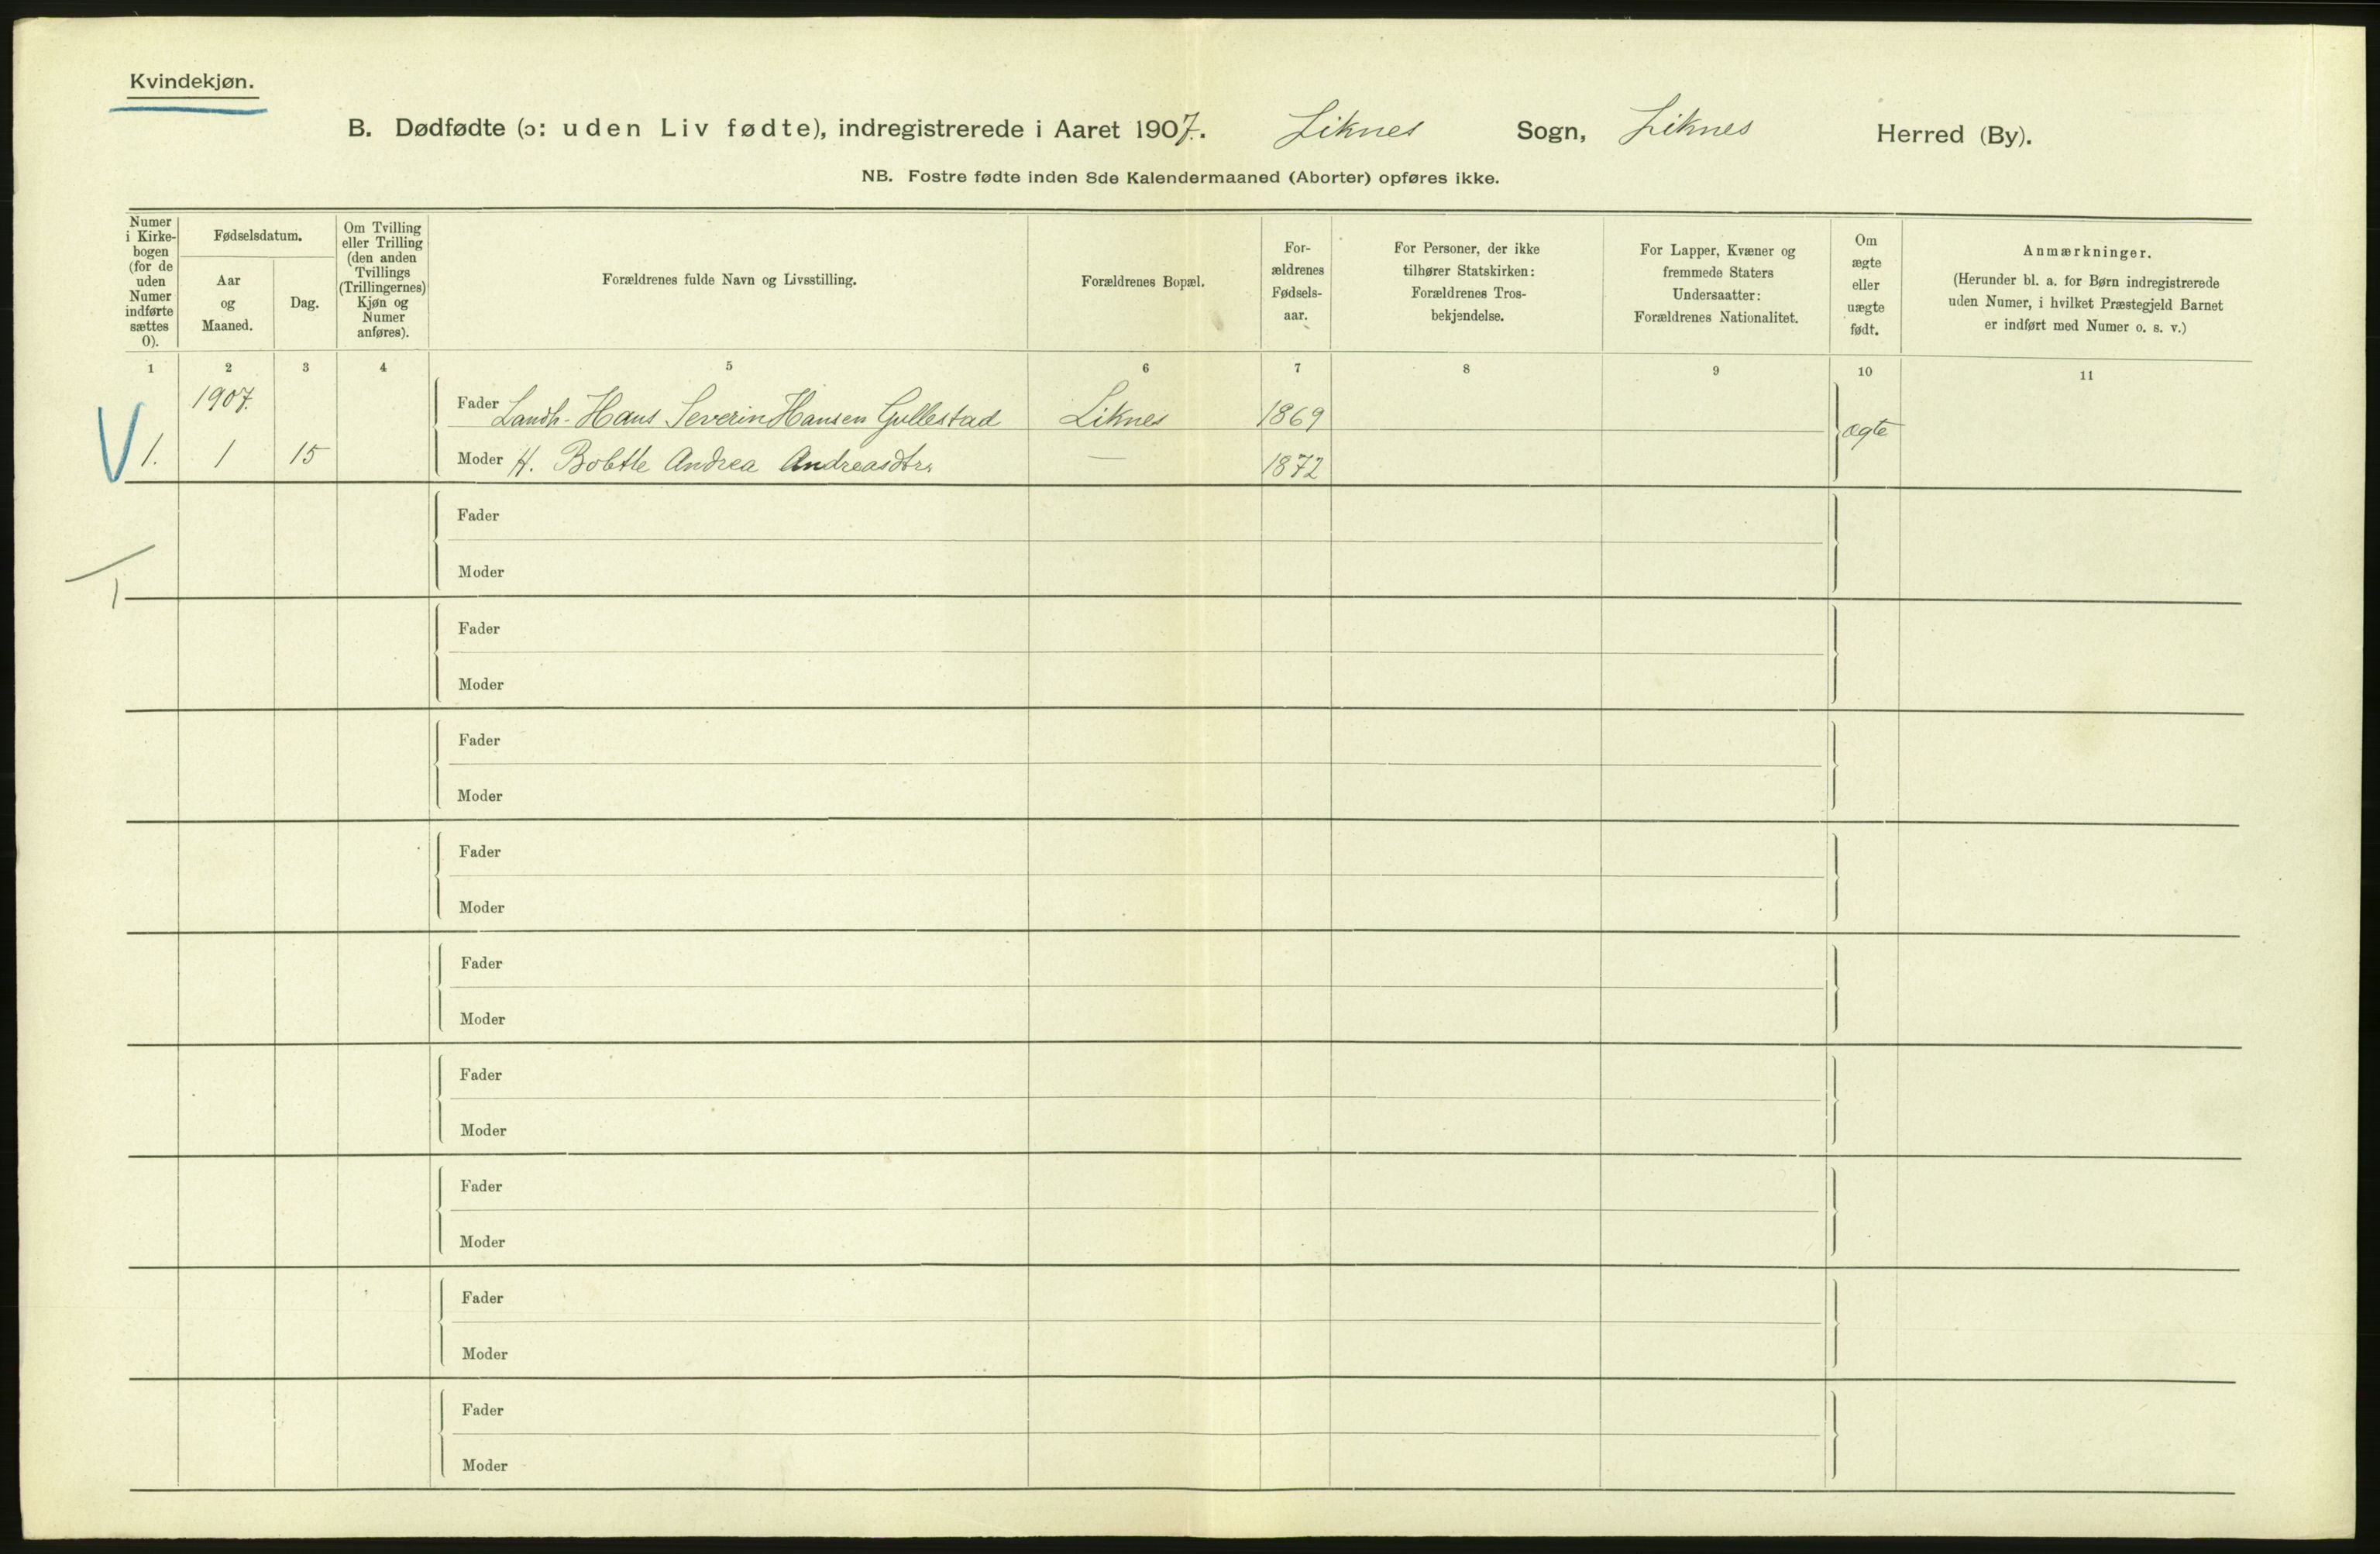 Kvindekjøn.
B. Dødfødte (ɔ: uden Liv fødte), indregistrerede i Aaret 1907. Liknes Sogn, Liknes Herred (By).
NB. Fostre fødte inden 8de Kalendermaaned (Aborter) opføres ikke.
Numer
i Kirke-
bogen
(for de
uden
Numer
indførte
sættes
0).
Fødselsdatum.
Aar
og
Maaned.
Dag.
Om Tvilling
eller Trilling
(den anden
Tvillings
(Trillingernes)
Kjøn og
Numer
anføres).
Forældrenes fulde Navn og Livsstilling.
Forældrenes Bopæl.
For-
ældrenes
Fødsels-
aar.
For Personer, der ikke
tilhører Statskirken:
Forældrenes Tros-
bekjendelse.
For Lapper, Kvæner og
fremmede Staters
Undersaatter:
Forældrenes Nationalitet.
Om
ægte
eller
uægte
født.
Anmærkninger.
(Herunder bl. a. for Børn indregistrerede
uden Numer, i hvilket Præstegjeld Barnet
er indført med Numer o. s. v.)
1 2 3 4 5 6 7 8 9 10 11
1907.
Fader Landh. Hans Severin Hansen Gullestad Liknes 1869
ægte
1. 1 15 Moder H. Andrea Andreasdtr. — 1872
Fader
Moder
1
Fader
Moder
Fader
Moder
Fader
Moder
Fader
Moder
Fader
Moder
Fader
Moder
Fader
Moder
Fader
Moder